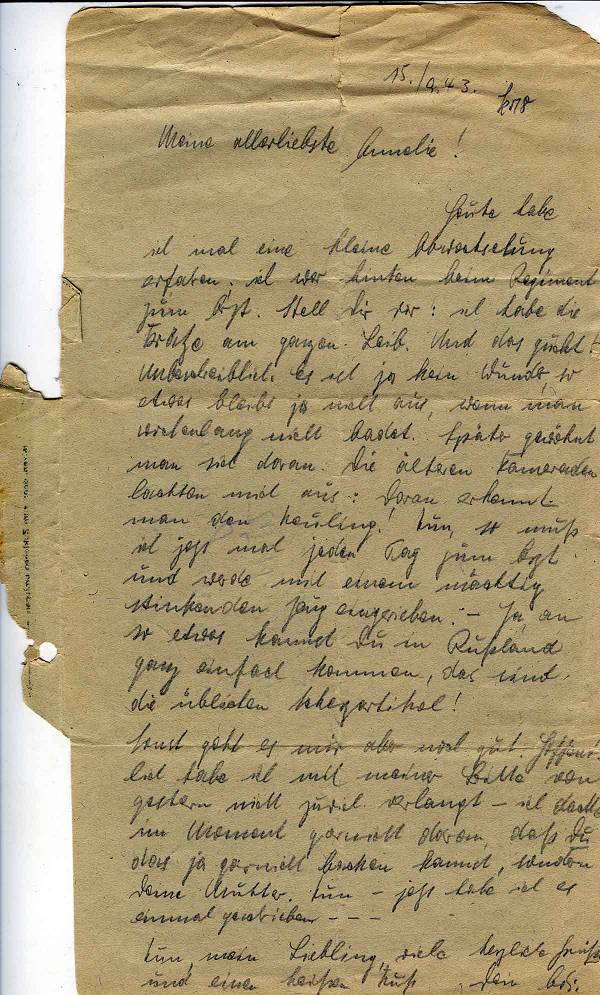 15./9.43.
Meine allerliebste Annelie!
Heute habe
ich mal eine kleine Abwechselung
erfahren. ich war hinten beim Regiment
zum Arzt. Stell Dir vor: ich habe die
Krätze am ganzen Leib. Und das juckt!
Unbeschreiblich. es ist ja kein Wunder so
etwas bleibt ja nicht aus, wenn man
wochenlang nicht badet. Später gewöhnt
man sich daran. Die älteren Kameraden
lachten mich aus: Daran erkennt
man den Neuling! Nun, so muß
ich jetzt mal jeden Tag zum Arzt
und werde mit einem mächtig
stinkenden Zeug eingerieben. – Ja, an
so etwas kannst Du in Rußland
ganz einfach kommen, das sind
die üblichen
Sonst geht es mir aber noch gut. Hoffent-
lich habe ich mit meiner Bitte von
gestern nicht zuviel verlangt – ich dachte
im Moment garnicht daran, daß Du
das ja garnicht backen kannst, sondern
Deine Mutter. Nun – jetzt habe ich es
einmal geschrieben – – –
Nun, mein Liebling, viele herzliche Grüße
und einen heißen Kuß Dein